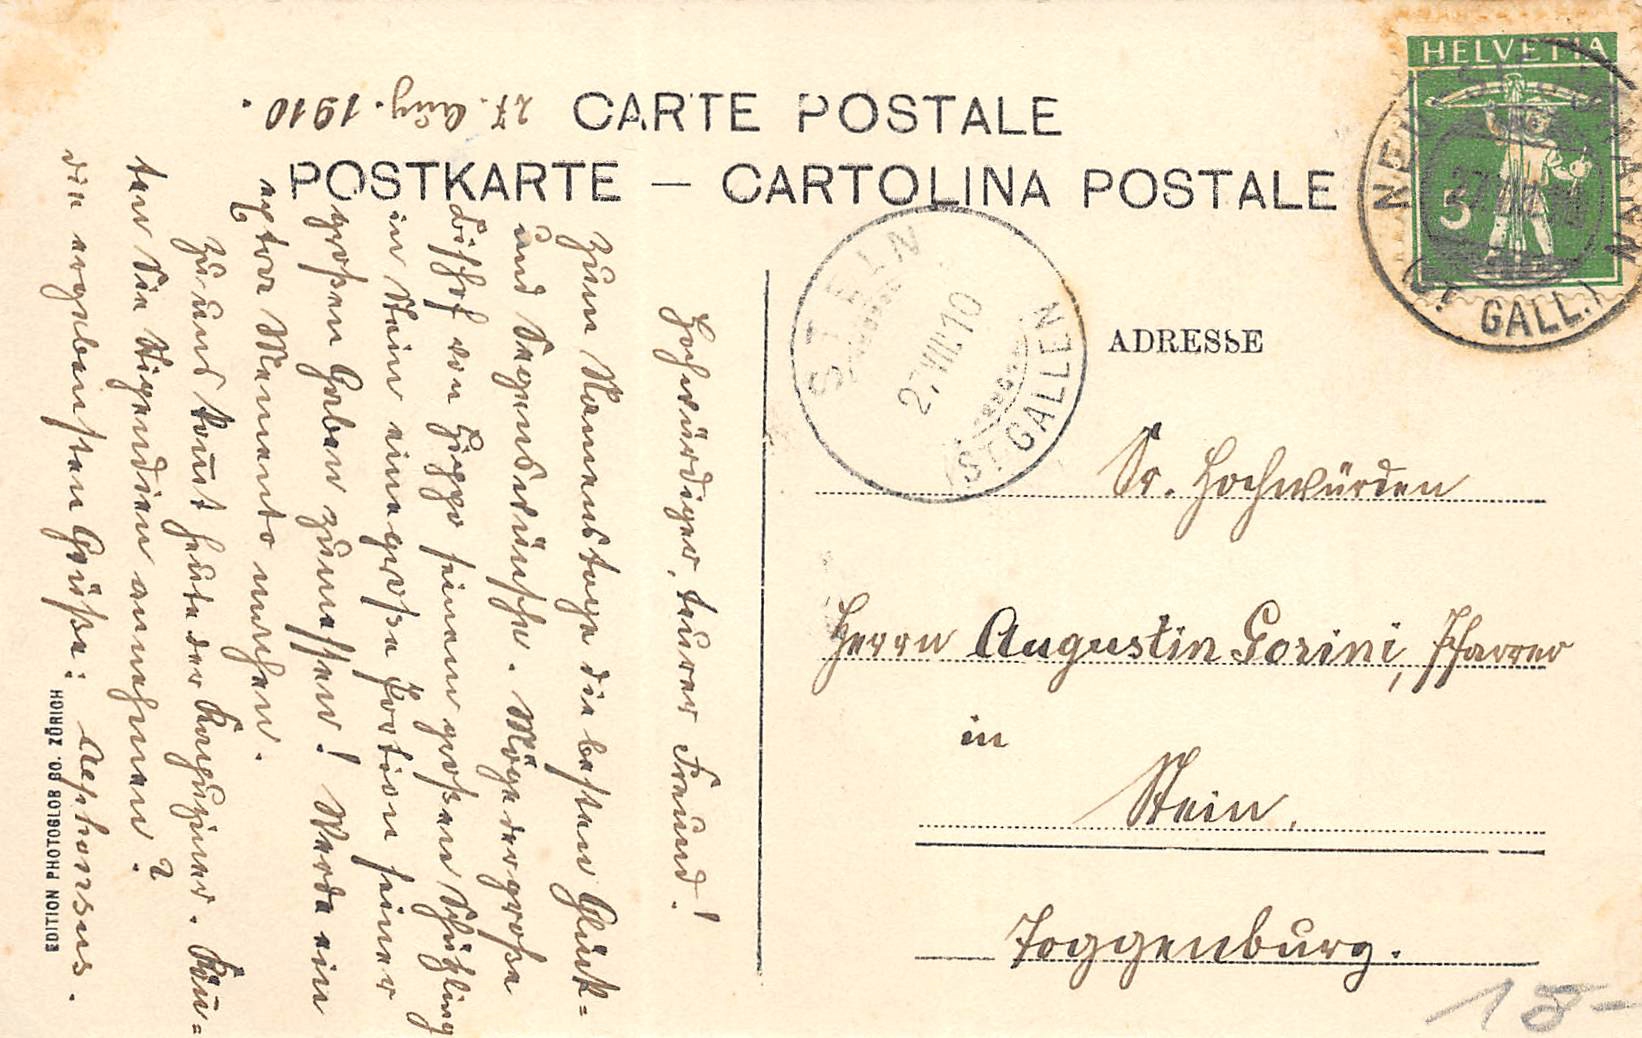 27. Aug. 1910.
CARTE POSTALE
POSTKARTE — CARTOLINA POSTALE
HELVETIA
5
NEU
(ST. GALL.)
STEIN
27.VIII.10
(ST. GALLEN)
ADRESSE
Hochwürdiger, teurer Freund!
Zum Namenstage die besten Glück=
und Segenswünsche. Möge der große
Bischof von Hippo seinem großen Schützling
in Stein eine große Portion seiner
großen Gaben zumessen! Werde ein
Memento machen.
Zu uns kom̅t heute der Kapuziner. Kön=
ten Sie Vigendien annehmen?
die ergebensten Grüße: Alphonsus.
Sr. Hochwürden
Herrn Augustin Gorini, Pfarrer
in
Stein,
Toggenburg.
EDITION PHOTOGLOB CO. ZÜRICH
18-